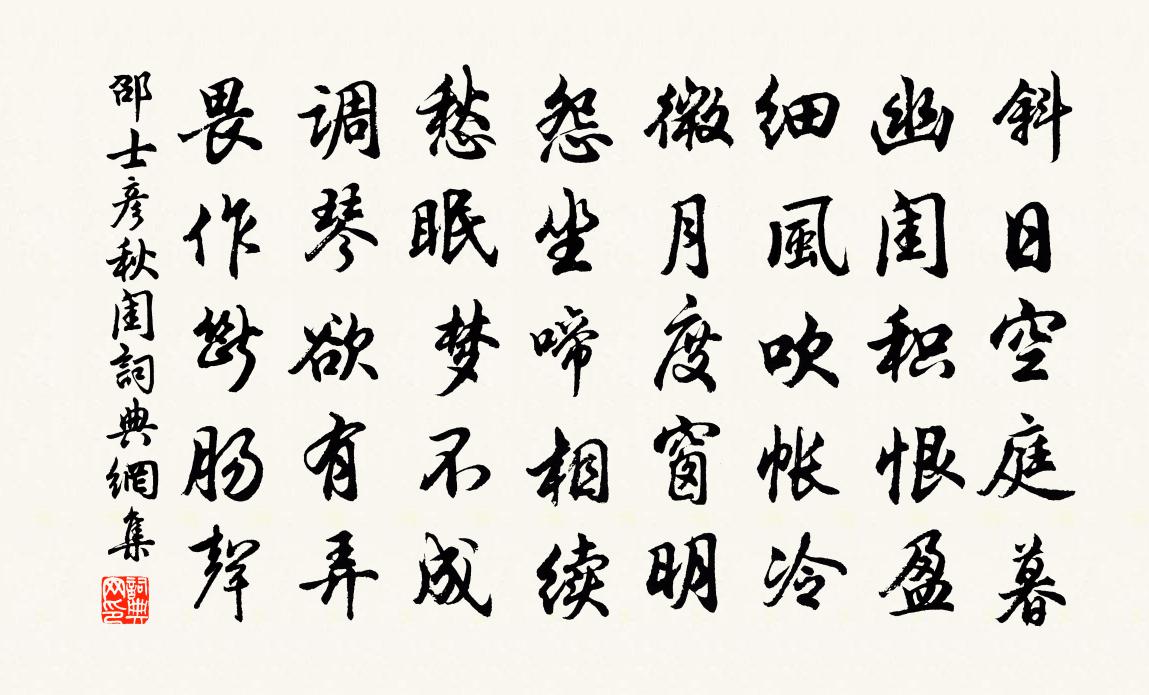 斜日空庭暮
幽闺积恨盈
细風吹帐冷
微月度窗明
怨坐啼相续
愁眠梦不成
调琴欲有弄
畏作断肠聲
邵士彦秋闺詞典網集
詞典网印